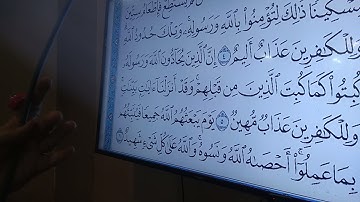 يَسْتَطِعْ فَإِطْعَامُ سِتِّينَ
مِسْكِينًا ذَٰلِكَ لِتُؤْمِنُوا بِاللَّهِ وَرَسُولِهِ وَتِلْكَ حُدُودُ اللَّهِ
وَلِلْكَافِرِينَ عَذَابٌ أَلِيمٌ ٤ إِنَّ الَّذِينَ يُحَادُّونَ اللَّهَ وَرَسُولَهُ
كُبِتُوا كَمَا كُبِتَ الَّذِينَ مِن قَبْلِهِمْ وَقَدْ أَنزَلْنَا آيَاتٍ بَيِّنَاتٍ
وَلِلْكَافِرِينَ عَذَابٌ مُّهِينٌ ٥ يَوْمَ يَبْعَثُهُمُ اللَّهُ جَمِيعًا فَيُنَبِّئُهُم
بِمَا عَمِلُوا أَحْصَاهُ اللَّهُ وَنَسُوهُ وَاللَّهُ عَلَىٰ كُلِّ شَيْءٍ شَهِيدٌ ٦